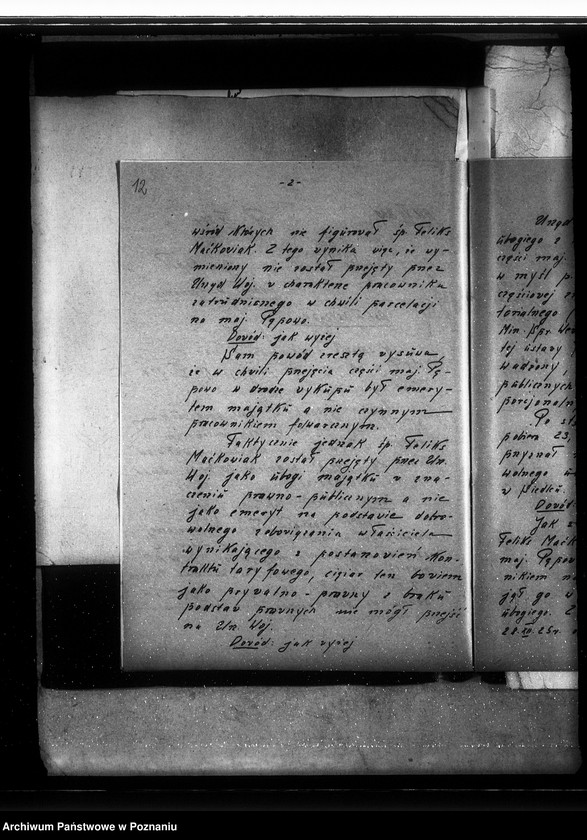 12
-2-
wśród których nie figurował śp. Feliks
Maćkowiak. Z tego wynika więc, że wy-
mieniony nie został przejęty przez
Urząd Woj. w charakterze pracownika
zatrudnionego w chwili parcelacji
na maj. Pępowo.
Dowód: jak wyżej
Sam powód zresztą wysuwa,
że w chwili przejęcia części maj. Pę-
powo w drodze wykupu był emery-
tem majątku a nie czynnym
pracownikiem folwarcznym.
Faktycznie jednak śp. Feliks
Maćkowiak został przejęty przez Urz.
Woj. jako ubogi majątku w zna-
czeniu prawno-publicznym a nie
jako emeryt na podstawie dobro-
wolnego zobowiązania właściciela
wynikającego z postanowień kon-
traktu taryfowego, ciężar ten bowiem
jako prywatno-prawny z braku
podstaw prawnych nie mógł przejść
na Urz. Woj.
Dowód: jak wyżej
Urząd
ubogiego z
części maj.
w myśl p
częściowej
torialnego
Min. Spr. We
tej ustawy
publicznych
porcjonaln
Po
pobiera 23,
przyznał
wolnego
w Siedlcu.
Dowód
Jak z
Feliks Maćk
maj. Pępow
nikiem
jął go
ubogiego.
Archiwum Państwowe w Poznaniu